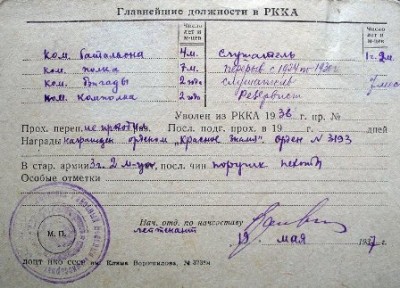 Главнейшие должности в РККА
Число лет и м-цев
Число лет и м-цев
ком. батальона 4 м. слушатель 1 г. 2 м.
ком. полка 7 м. перерыв с 1924 по
ком. бригады 2 года слушатель
ком. комполка 2 Резервист
Уволен из РККА 1936 г. пр. №
Прох. перепо Посл. подг. прох. в 19 г. дней
Награды награжден орденом „Красное знамя" орден N 3193
В стар. армии 3 г. 2 м-ца, посл. чин поручик пехоты
Особые отметки
М. П.
Нач. отд. по начсоставу
лейтенант
19 мая 1937 г.
НКО СССР им. Клима Ворошилова, №